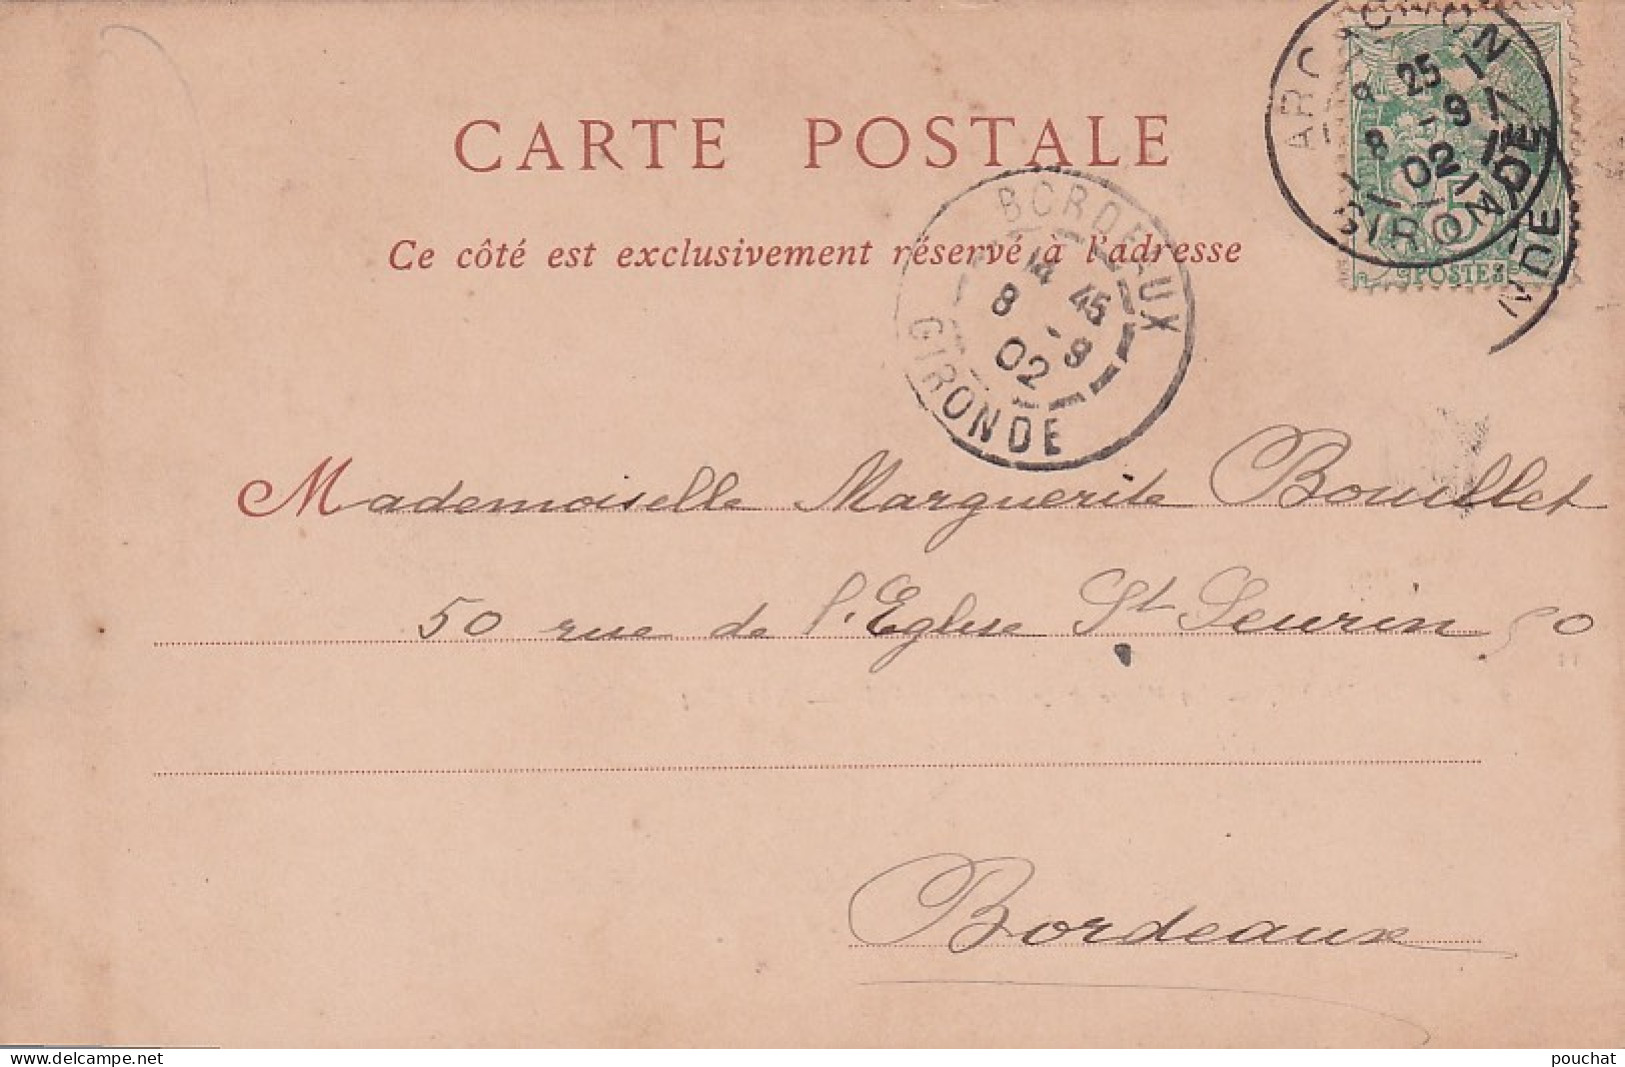 CARTE POSTALE
Ce côté est exclusivement réservé à l'adresse
ARCACHON
9 25
8 -9
02
GIRONDE
POSTES
NDE
BORDEAUX
14 45
8 -9
02
GIRONDE
Mademoiselle Marguerite Bouillet
50 rue de l'Eglise St Seurin 50
Bordeaux
www.delcampe.net
pouchat